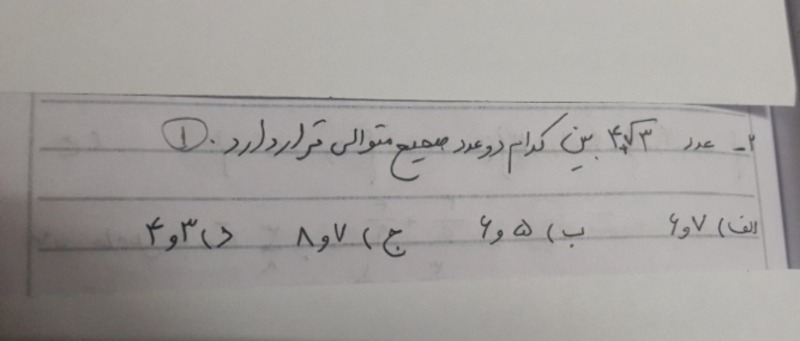 ۲- عدد ۴√۳ بین کدام دو عدد صحیح متوالی قرار دارد. ①
الف) ۷ و ۶ ب) ۵ و ۶ ج) ۷ و ۸ د) ۳ و ۴